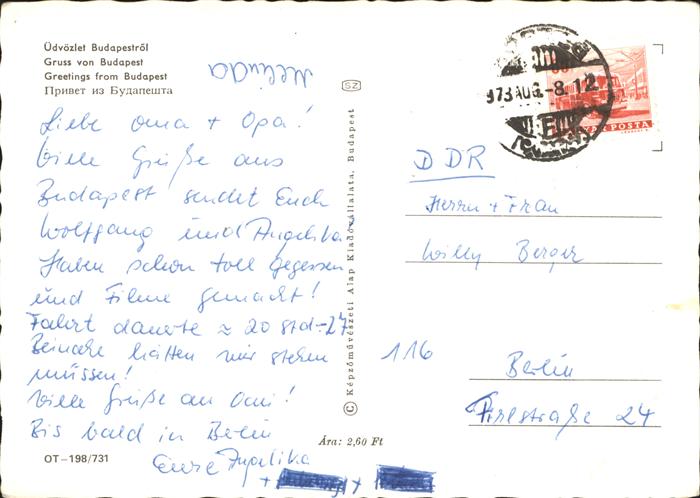 Üdvözlet Budapestről
Gruss von Budapest
Greetings from Budapest
Привет из Будапешта
Melinda
Liebe Oma + Opa!
Viele Grüße aus
Budapest sendet Euch
Wolfgang und Angelika
Haben schon toll gegessen
und Filme gemacht!
Fahrt dauerte ≈ 20 Std
Beinahe hätten wir stehen
müssen!
Viele Grüße an Omi!
Bis bald in Berlin
Eure Angelika
+ +
OT-198/731
Ára: 2,60 Ft
SZ
© Képzőművészeti Alap Kiadóvállalata, Budapest
973 AUG.-8.12
POSTA
DDR
Herrn + Frau
Willy Berger
116
Berlin
straße 24